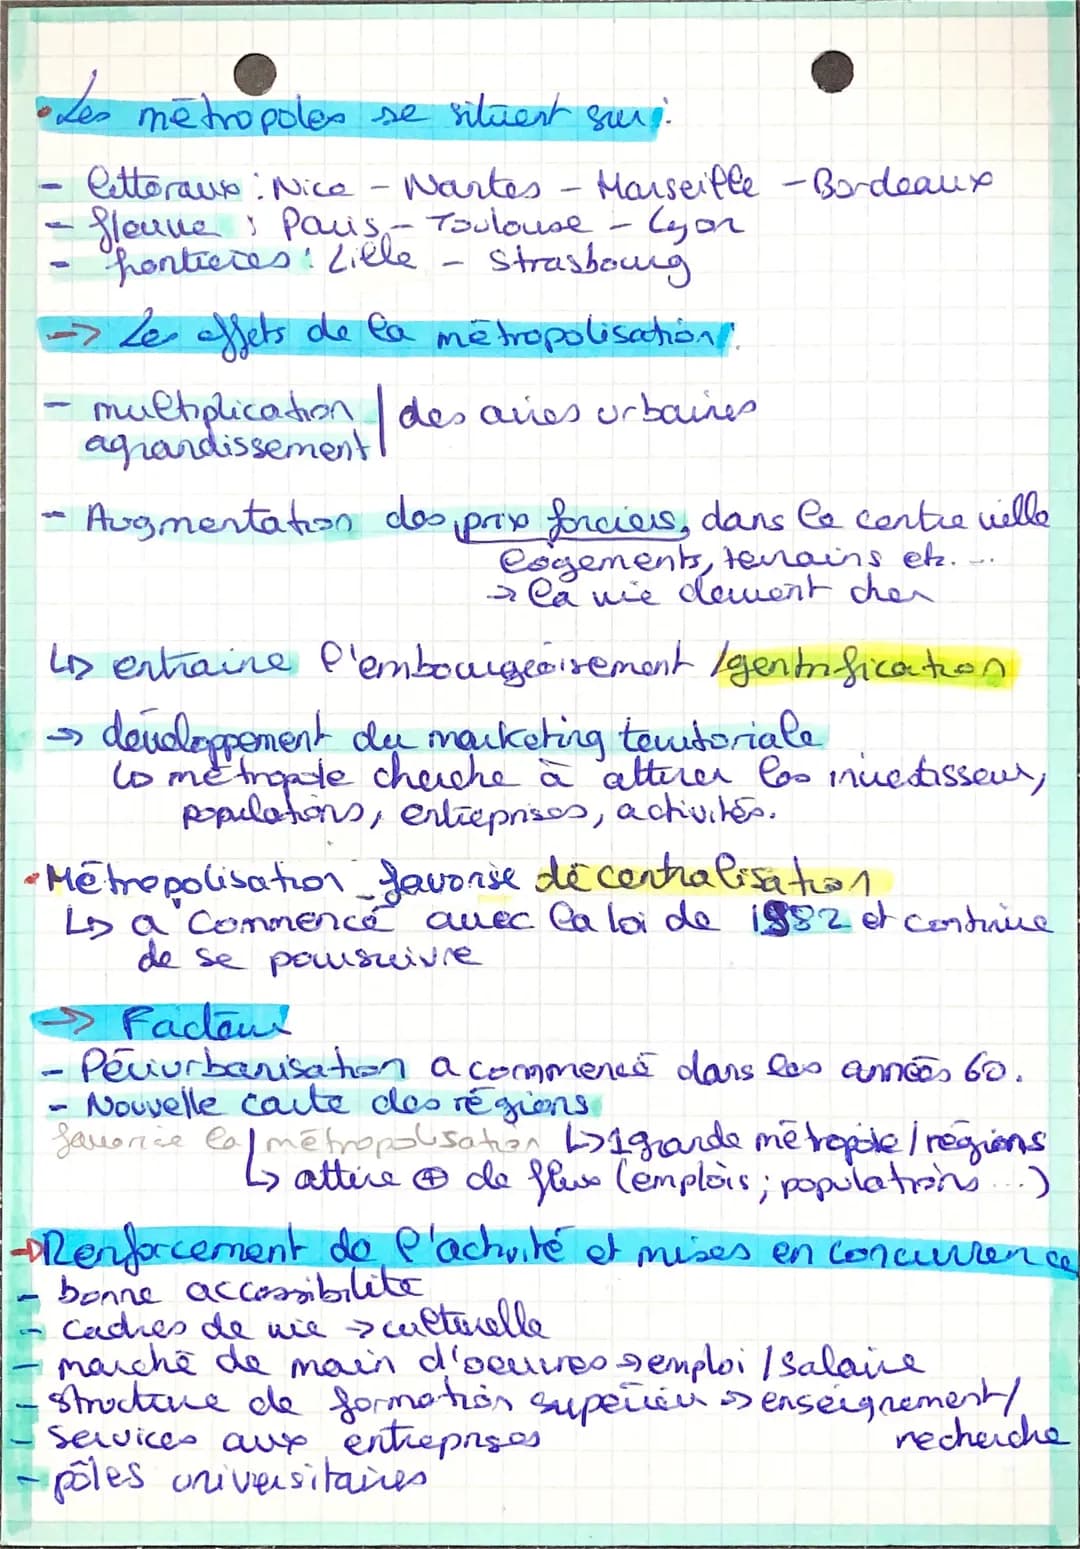 • Les métropoles se situent sur :
- littoraux : Nice - Nantes - Marseille - Bordeaux
- fleuve : Paris - Toulouse - Lyon
- frontières : Lille - Strasbourg
-> Les effets de la métropolisation :
- multiplication | des aires urbaines
agrandissement |
- Augmentation des prix fonciers, dans le centre ville
logements, terrains etc. ...
-> la vie devient cher
↳ entraine l'embourgeoisement / gentrification
-> développement du marketing territoriale
↳ métropole cherche à attirer les investisseurs,
populations, entreprises, activités.
• Métropolisation favorise décentralisation
↳ a commencé avec la loi de 1982 et continue
de se poursuivre
-> Facteur
- Périurbanisation a commencé dans les années 60.
- Nouvelle carte des régions
favorise la métropolisation ↳ 1 grande métropole / régions
↳ attire ⊕ de flux (emplois ; populations ...)
-> Renforcement de l'activité et mises en concurrence
- bonne accessibilité
- cadres de vie -> culturelle
- marché de main d'oeuvres -> emploi / salaire
- structure de formation supérieur -> enseignement /
recherche
- Services aux entreprises
- pôles universitaires